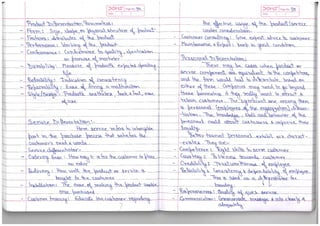 Product Differentiation Parameters:
- Form: Size, shape or physical structure of product
- Features: Attributes of the product
- Performance: Working of the product
- Conformance: Conformance to quality, specification or promise of marketer
- Durability: Measure of product's expected operating life
- Reliability: Indication of consistency
- Repairability: Ease of fixing a malfunction
- Style/Design: Product's aesthetics, look & feel, ease of use
Service Differentiation:
Here service refers to intangible part in the purchase process that satisfies the customer's need & wants.
Service differentiators:
- Ordering Ease: How easy is it for the customer to place an order
- Delivery: How well the product or service is brought to the customer
- Installation: The ease of making the product usable, once purchased
- Customer training: Educate the customer regarding
the effective usage of the product/service under consideration
- Customer consulting: Give expert advice to customer
- Maintenance & Repair: back to good condition
Personnel Differentiation:
There may be cases when product or service component are equivalent to the competitors and the firm would fail to differentiate based on either of these. Companies may need to go beyond these parameters if they really want to attract & retain customer. The significant one among them is personnel (employees of the organization)
The knowledge, skills and behavior of the personnel could attract customers & improve their loyalty.
Better trained personnel exhibit six characteristics. They are:
- Competence: Right skills to serve customer
- Courtesy: Politeness towards customer
- Credibility: Trustworthiness of employee
- Reliability: Consistency & dependability of employee
- Responsiveness: Quality of quick service
- Communication: message & info clearly &